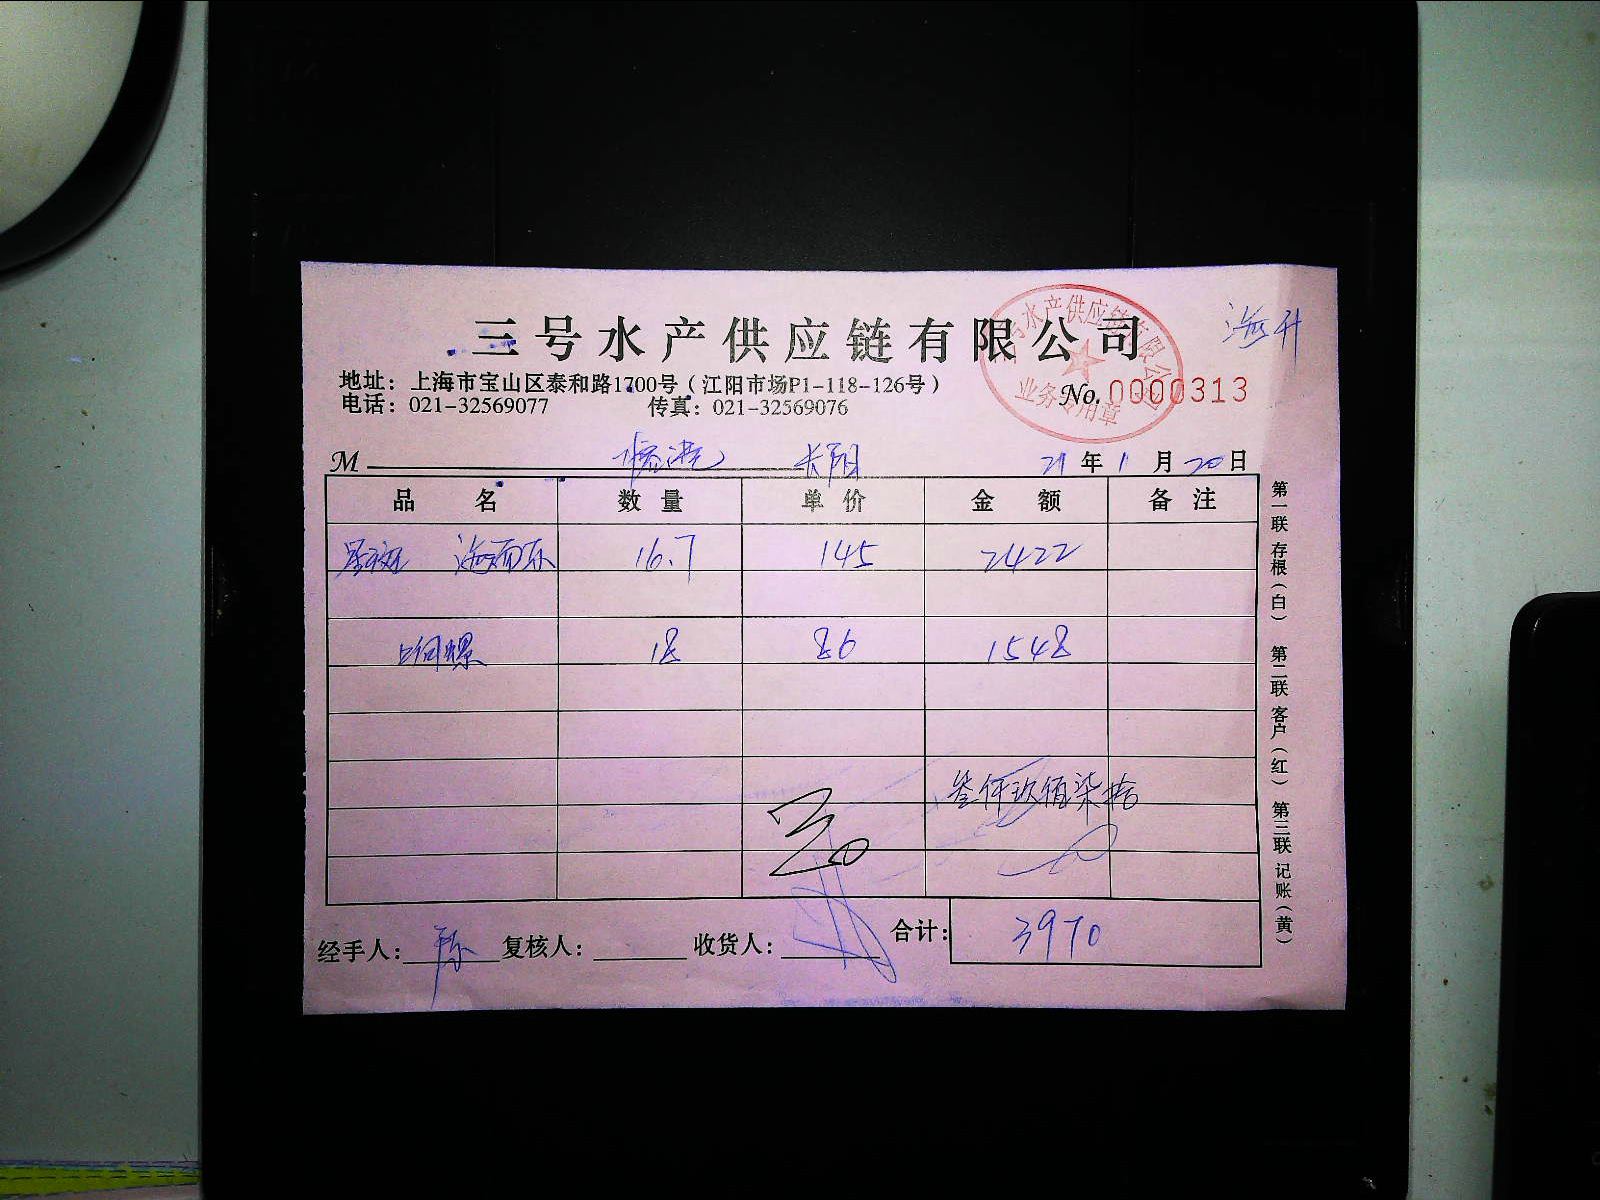 三号水产供应链有限公司
海升
地址：上海市宝山区泰和路1700号（江阳市场P1-118-126号）
电话：021-32569077 传真：021-32569076
三号水产供应链有限公司
业务专用章
No.0000313
M 临港 长翔 21年1月20日
品名 数量 单价 金额 备注
海 16.7 145 2422
响螺 18 86 1548
叁仟玖佰柒拾
合计：3970
经手人： 复核人： 收货人：
第一联 存根（白） 第二联 客户（红） 第三联 记账（黄）